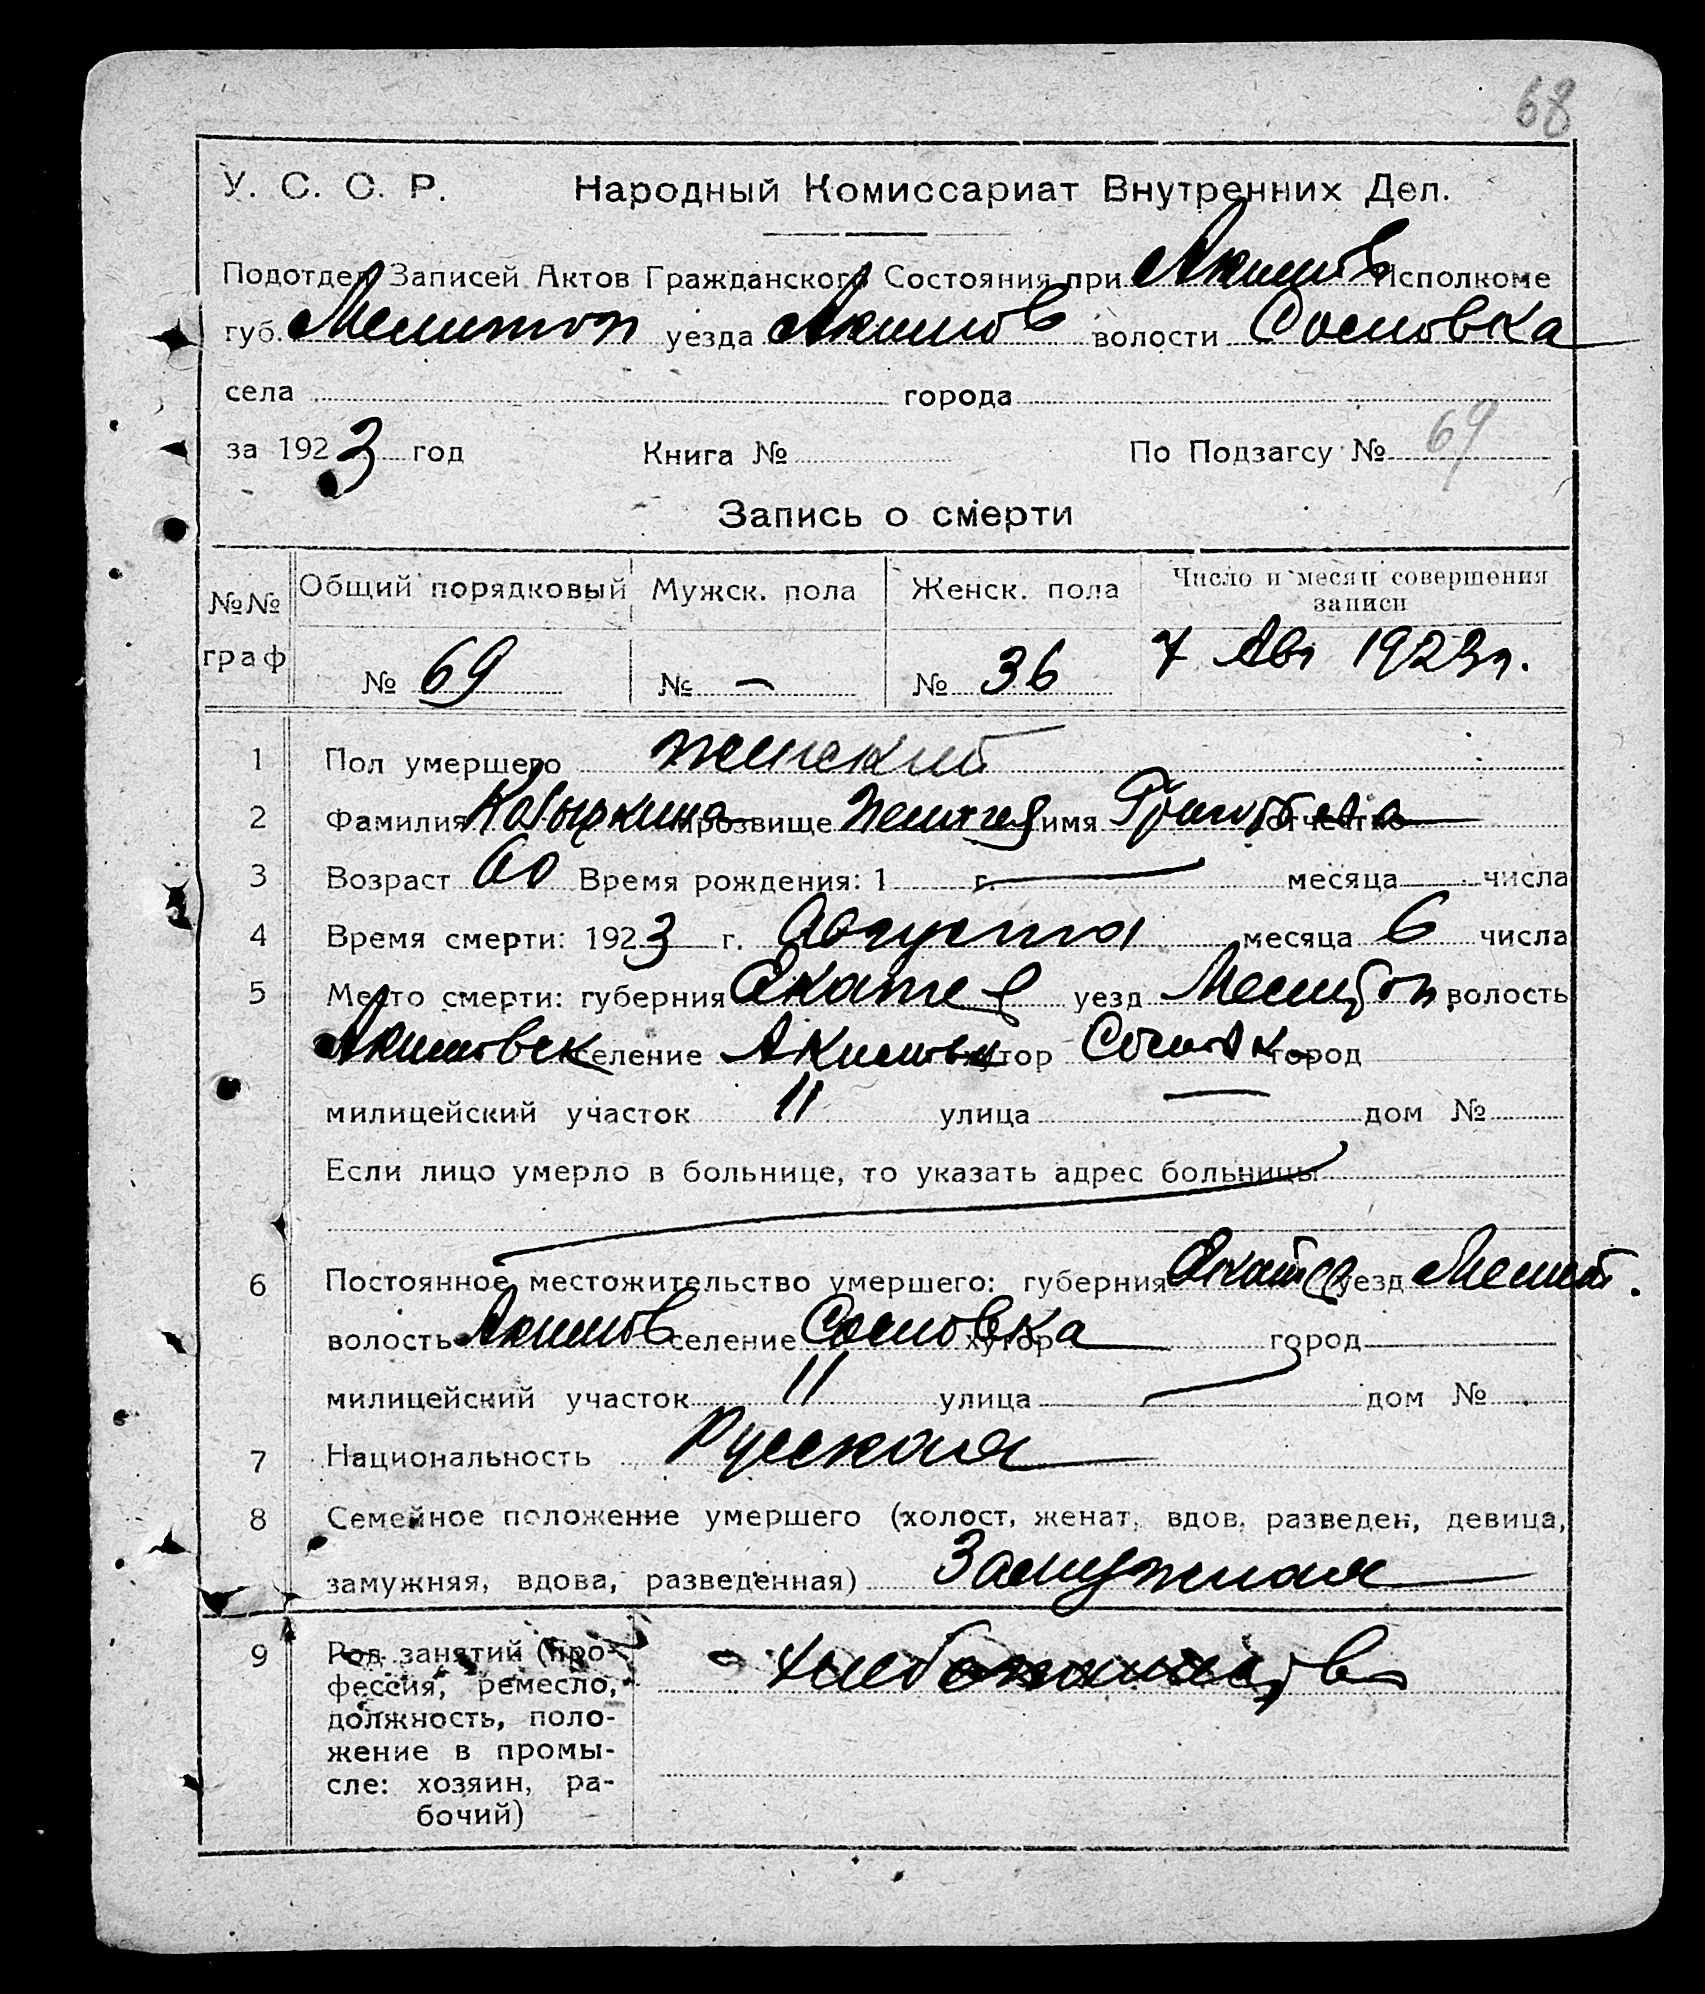 68
У. С. С. Р. Народный Комиссариат Внутренних Дел.
Подотдел Записей Актов Гражданского Состояния при Акимов Исполкоме
губ. Мелитоп уезда Акимов волости Сосновка
села города
за 1923 год Книга № По Подзагсу № 69
Запись о смерти
№№ граф Общий порядковый Мужск. пола Женск. пола Число и месяц совершения записи
№ 69 № – № 36 7 Авг 1923 г.
1 Пол умершего женский
2 Фамилия прозвище Пелагея имя отчество
3 Возраст 60 Время рождения: 1 г. месяца числа
4 Время смерти: 1923 г. Августа месяца 6 числа
5 Место смерти: губерния уезд Мелитоп. волость
Акимовск селение хутор город
милицейский участок 11 улица — дом №
Если лицо умерло в больнице, то указать адрес больницы
6 Постоянное местожительство умершего: губерния уезд Мелит.
волость Акимов селение Сосновка хутор город
милицейский участок 11 улица дом №
7 Национальность Русская
8 Семейное положение умершего (холост, женат, вдов, разведен, девица,
замужняя, вдова, разведенная) Замужная
9 Род занятий (про-
фессия, ремесло,
должность, поло-
жение в промы-
сле: хозяин, ра-
бочий)
хлебопашеств